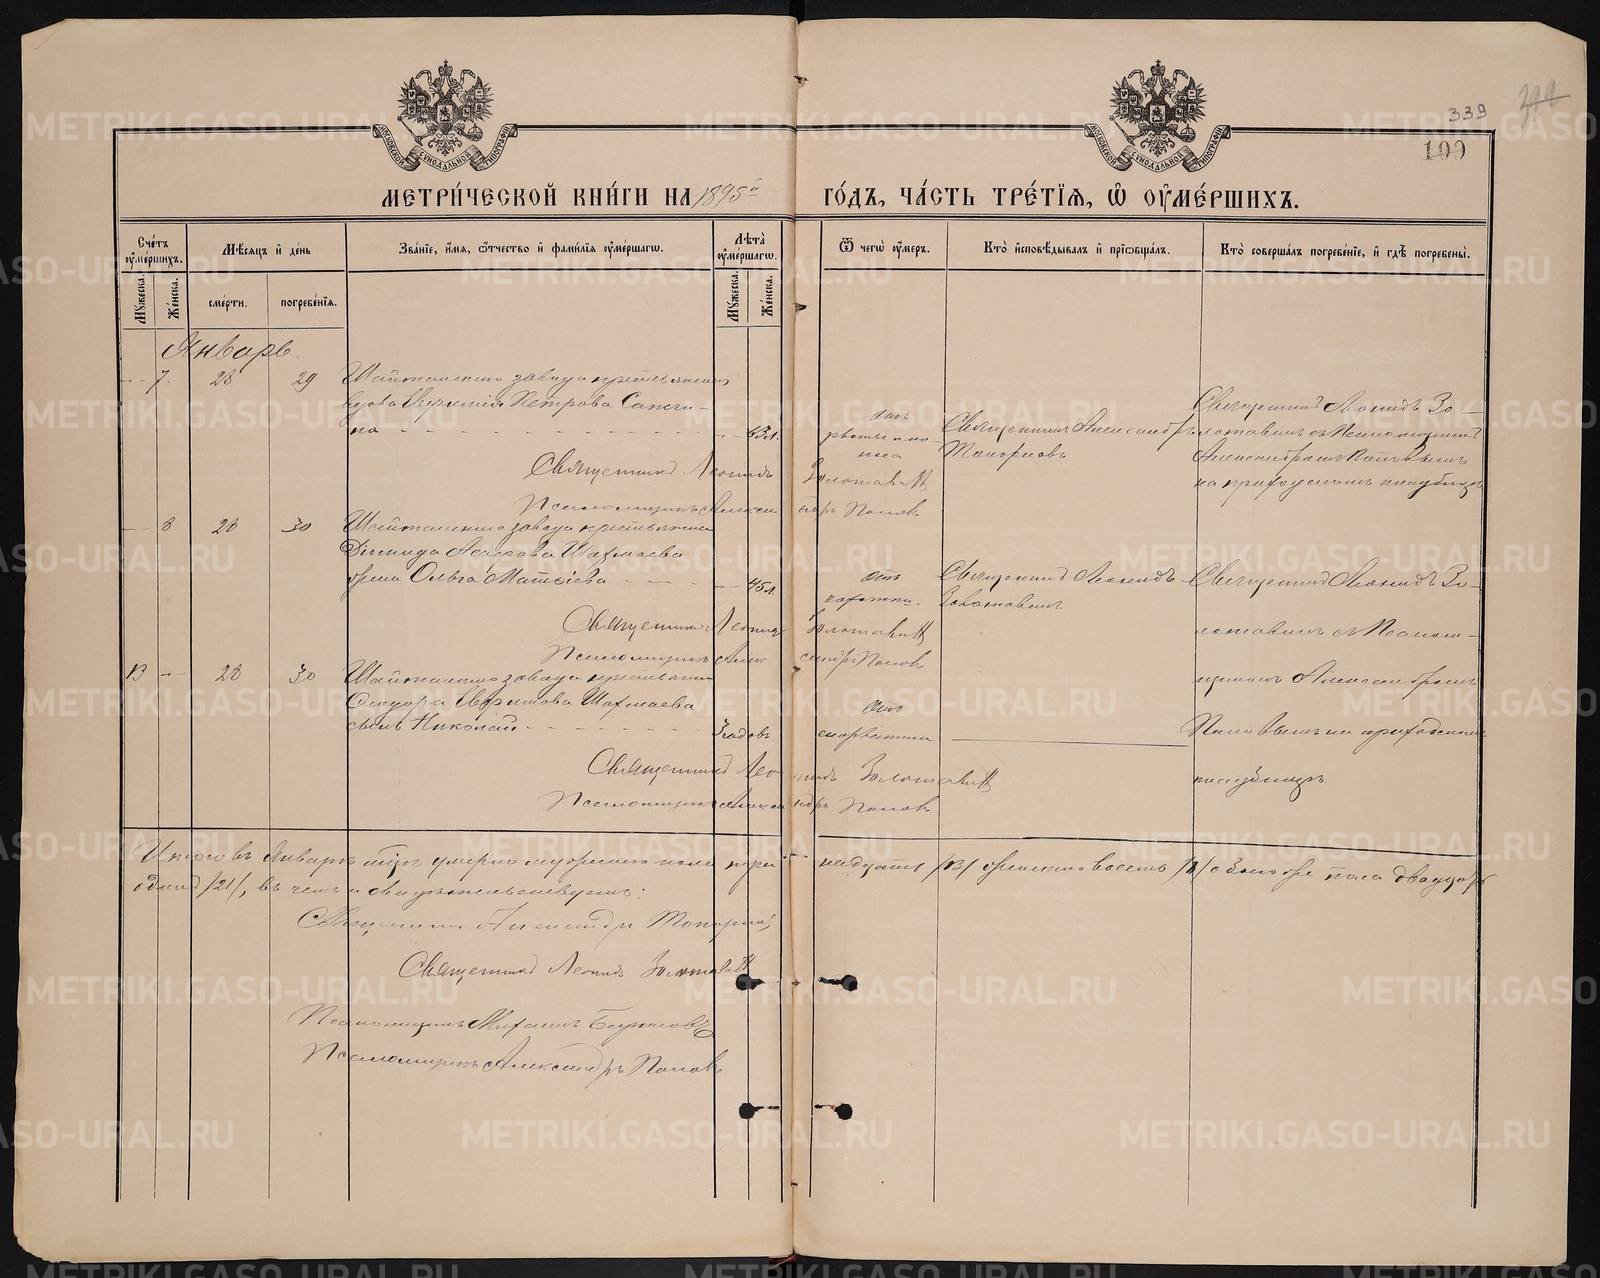 339
100
МЕТРИ́ЧЕСКОЙ КНИ́ГИ НА 1895й ГО́ДЪ, ЧА́СТЬ ТРЕ́ТІѦ, Ѡ ОУМЕ́РШИХЪ.
Сче́тъ оуме́ршихъ.
Мѣ́сѧцъ и҆ де́нь
Зва́нїе, и҆́мѧ, ѻ҆́тчество и҆ фами́лїѧ оуме́ршагѡ.
Лѣта̀ оуме́ршагѡ.
Ѿ чегѡ̀ оу́меръ.
Кто̀ и҆сповѣ́дывалъ и҆ прїѡбща́лъ.
Кто̀ соверша́лъ погребе́нїе, и҆ гдѣ̀ погребены̀.
Мꙋ́жеска.
Же́нска.
сме́рти.
погребе́нїѧ.
Мꙋ́жеска.
Же́нска.
Январь.
7. 28 29 Шайтанскаго завода крестьянская
вдова Петрова Сапоги-
на 63 л.
отъ
рвоты и по-
носа
Священникъ Александръ
Топорковъ
Священникъ Леонидъ Зо-
лотавинъ съ Псаломщикомъ
Александромъ Поповымъ
на приходскомъ кладбищѣ
Священникъ Леонидъ Золотавинъ
Псаломщикъ Александръ Поповъ
8 28 30 Шайтанскаго завода крестьянина
Шахмаева
жена Ольга Матвѣева 45 л.
отъ
чахотки.
Священникъ Леонидъ
Золотавинъ
Священникъ Леонидъ Зо-
лотавинъ съ Псалом-
щикомъ Александромъ
Поповымъ на приходскомъ
кладбищѣ.
Священникъ Леонидъ Золотавинъ
Псаломщикъ Александръ Поповъ
13 28 30 Шайтанскаго завода крестьянина
Ѳеодора Шахмаева
сынъ Николай 3 годовъ
отъ
скарлатины
Священникъ Леонидъ Золотавинъ
Псаломщикъ Александръ Поповъ
Итого въ Январѣ мѣс. умерло мужескаго пола тринадцать /13/ женскаго восемь /8/ обоего пола двадцать
одинъ /21/, въ чемъ и свидѣтельствуемъ:
Священникъ Александръ Топорковъ
Священникъ Леонидъ Золотавинъ
Псаломщикъ
Псаломщикъ Александръ Поповъ
METRIKI.GASO-URAL.RU